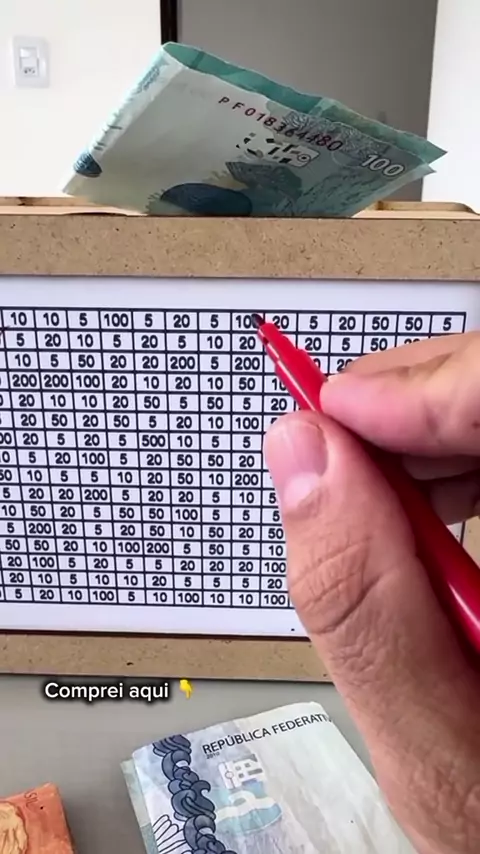 PF018364480
100
10 10 5 100 5 20 5 100 20 5 20 50 50 5
5 20 10 5 20 5 10 20 20 5 20
10 5 50 20 20 200 5 200
200 200 100 20 10 20 10 50 10
20 10 10 20 50 5 50 5 20
20 50 20 50 5 20 10 100
20 5 20 5 500 10 5 5
5 20 100 5 20 50 50 20
50 10 5 5 10 20 50 10 200
5 20 20 200 5 20 20 5 10 5
10 50 5 20 50 50 100 5 5 5
5 200 20 5 20 50 10 50 20 50
50 50 20 10 100 200 5 50 5 10
20 100 20 5 5 20 20 20 100
20 10 5 10 10 20 5 5 5 20
5 20 10 100 5 10 100 10 10 100
Comprei aqui 👇
REPÚBLICA FEDERATIV